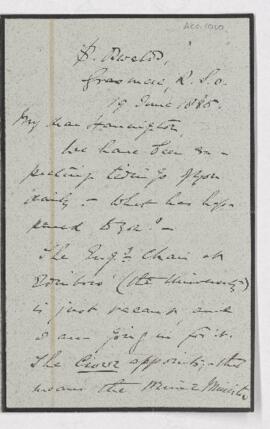 Acc. 1000
S. Oswald's,
Grasmere, R.S.O.
19 June 1885.
My dear
We have been ex-
pecting tidings of you
daily. – What has hap-
pened to you? –
The Eng. Chair at
Edinboro' (the University)
is just vacant, and
I am going in for it.
The Crown appoints, – this
means the Prime Minister